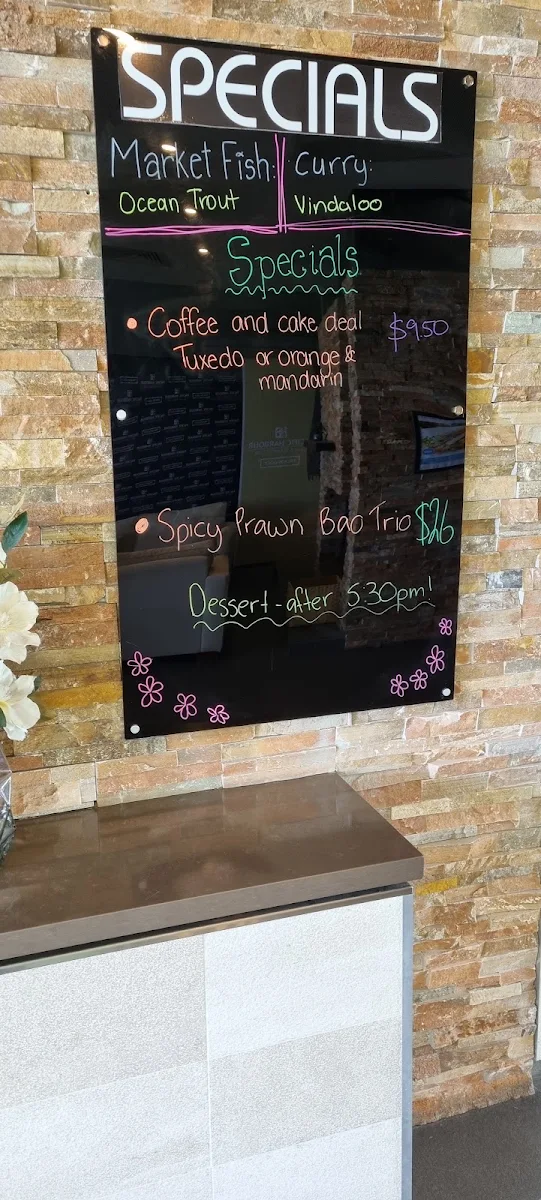 SPECIALS
Market Fish: Curry:
Ocean Trout Vindaloo
Specials
• Coffee and cake deal $9.50
Tuxedo or orange &
mandarin
• Spicy Prawn Bao Trio $26
Dessert - after 5:30pm!